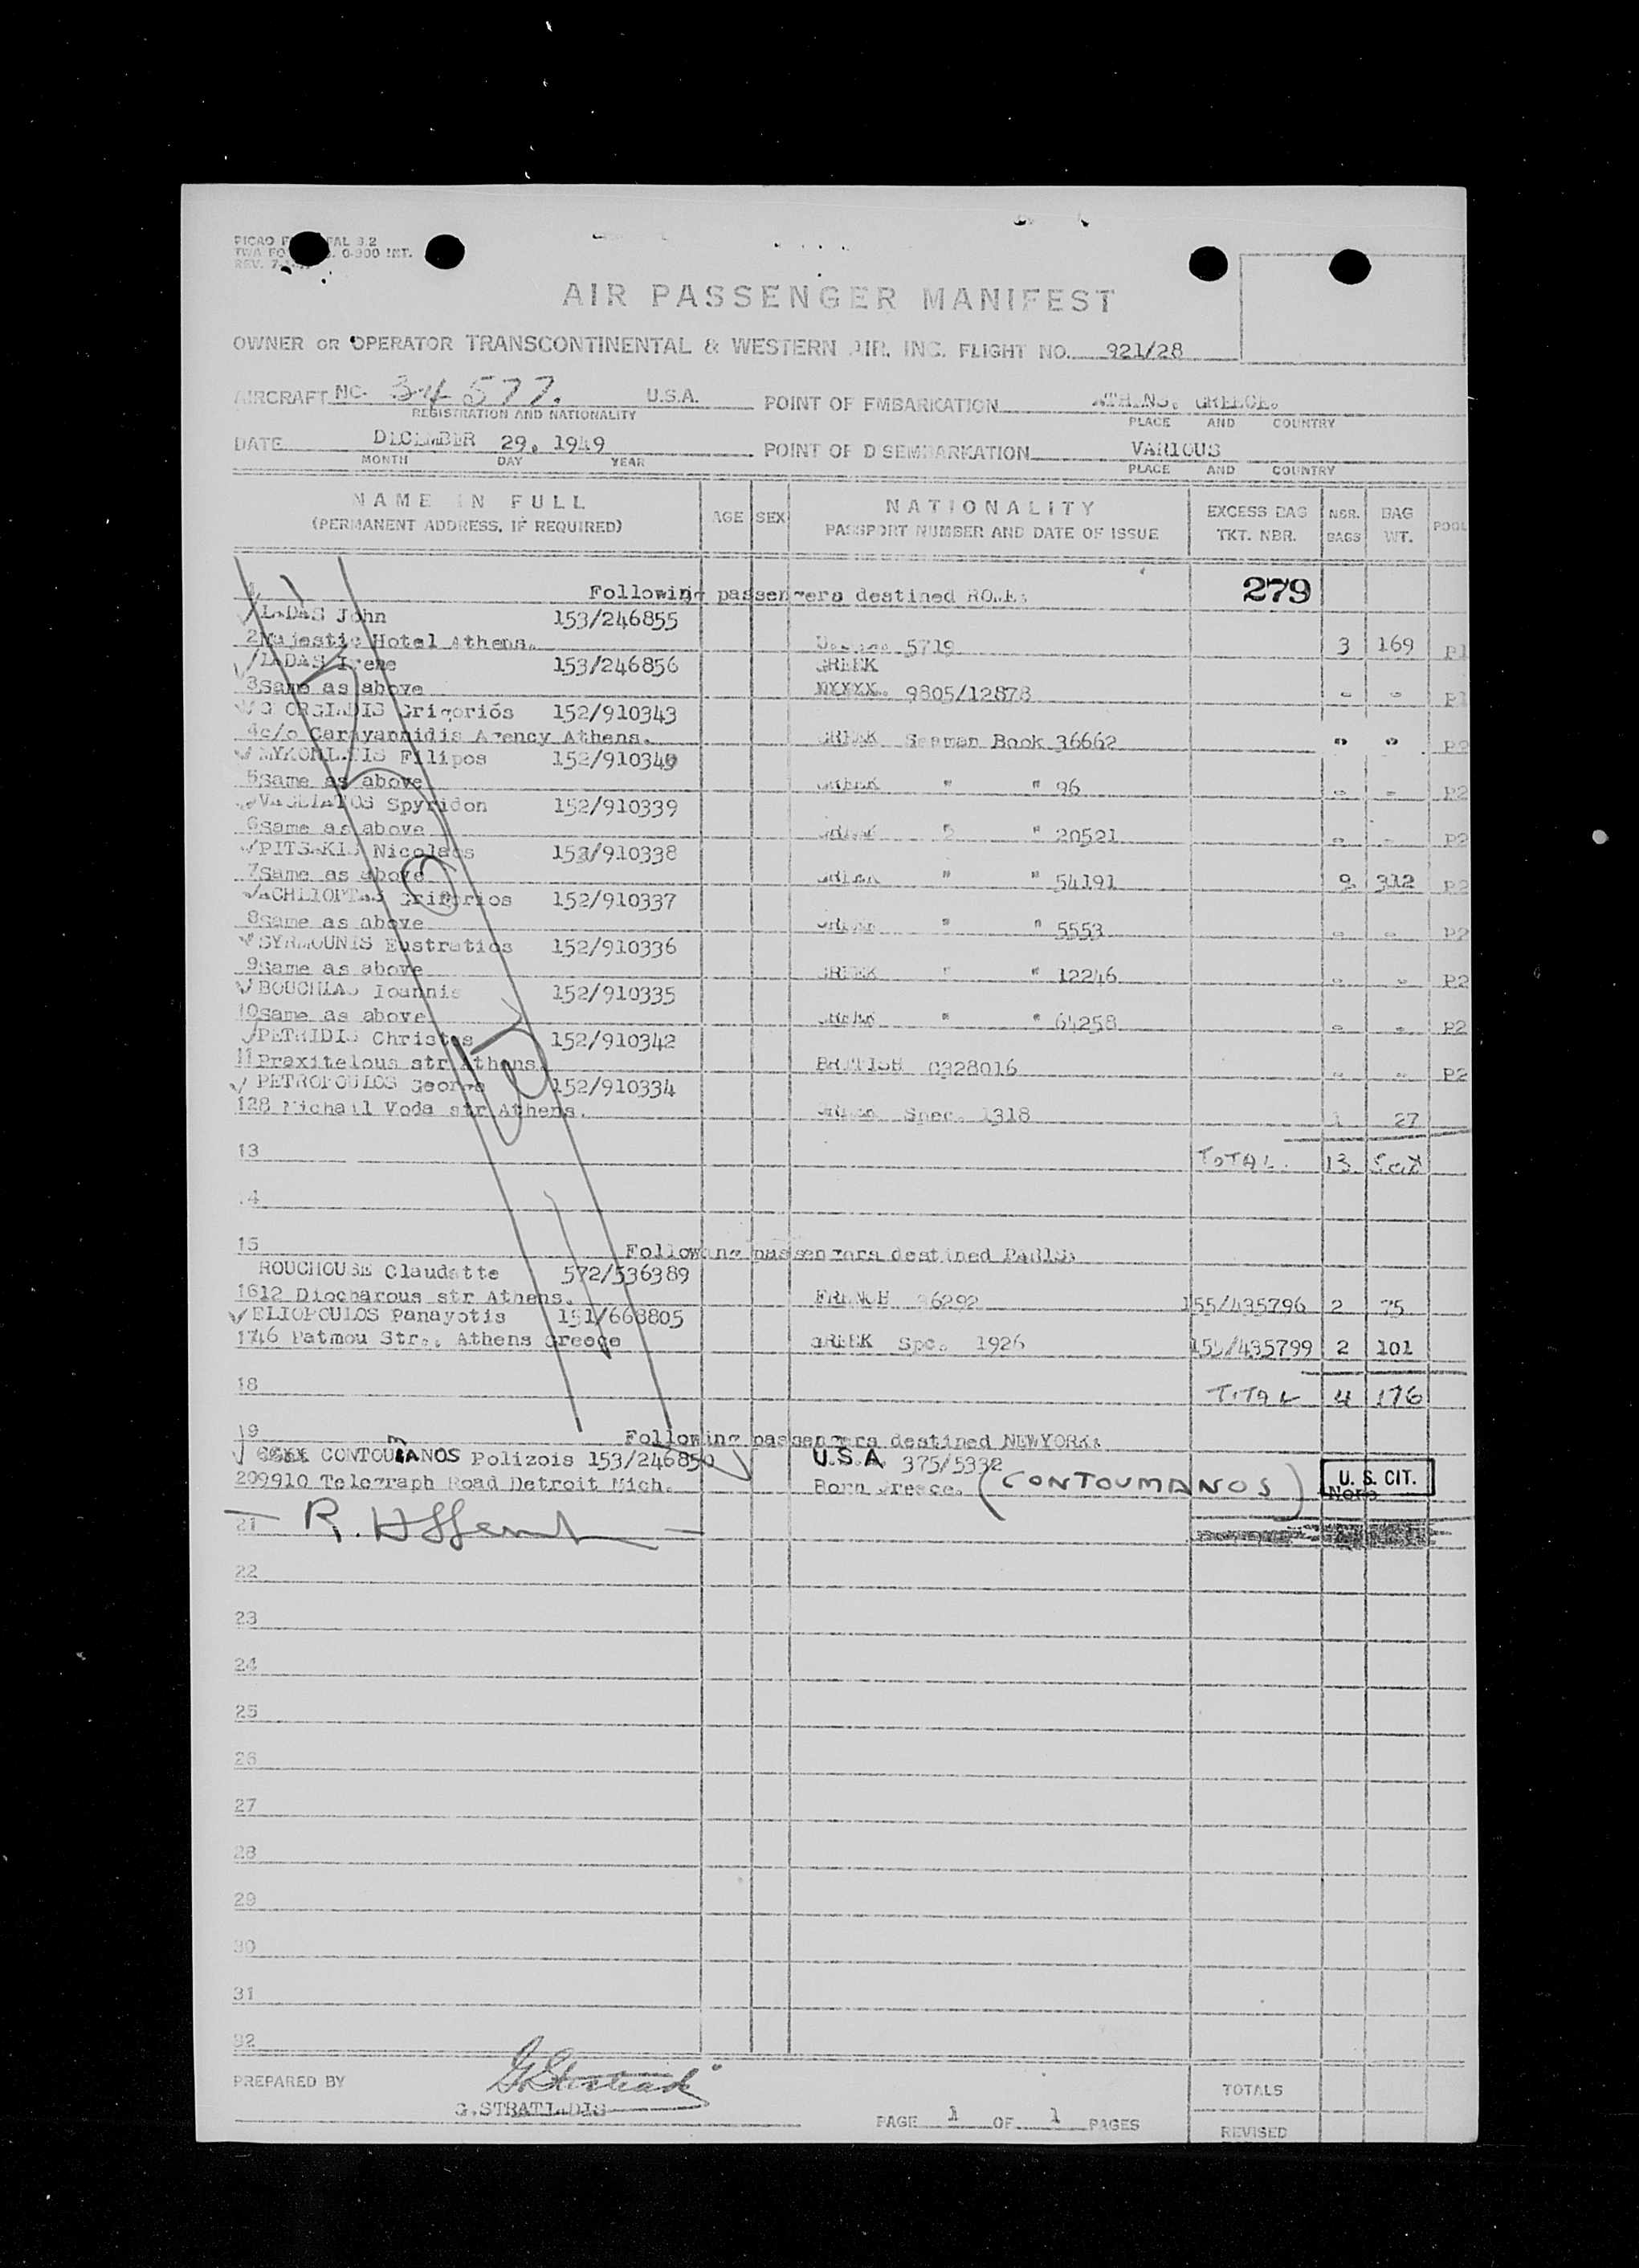 AIR PASSENGER MANIFEST
OWNER OR OPERATOR TRANSCONTINENTAL & WESTERN AIR, INC. FLIGHT NO. 921/28
AIRCRAFT NC. 34577. U.S.A. POINT OF EMBARKATION ATHENS, GREECE.
REGISTRATION AND NATIONALITY PLACE AND COUNTRY
DATE DECEMBER 29, 1949 POINT OF DISEMBARKATION VARIOUS
MONTH DAY YEAR PLACE AND COUNTRY
NAME IN FULL NATIONALITY EXCESS BAG NBR. BAG
(PERMANENT ADDRESS, IF REQUIRED) AGE SEX PASSPORT NUMBER AND DATE OF ISSUE TKT. NBR. BAGS WT. POOL
1 Following passengers destined ROME: 279
LADAS John 153/246855
2 Majestic Hotel Athens. 5719 3 169 P1
LADAS Irene 153/246856 GREEK
3 Same as above 9805/12878 " " P1
Grigoriós 152/910343
4 c/o Carayannidis Agency Athens. GREEK Seaman Book 36662 " " P2
Filipos 152/910340
5 Same as above GREEK " " 96 " " P2
Spyridon 152/910339
6 Same as above GREEK " " 20521 " " P2
PITSAKIS Nicolaos 152/910338
7 Same as above GREEK " " 54191 9 312 P2
ACHLIOPTAS Grigorios 152/910337
8 Same as above GREEK " " 5553 " " P2
SYRMOUNIS Eustratios 152/910336
9 Same as above GREEK " " 12246 " " P2
BOUCHLAS Ioannis 152/910335
10 Same as above GREEK " " 64258 " " P2
PETRIDIS Christos 152/910342
11 Praxitelous str Athens. BRITISH C328016 " " P2
PETROPOULOS George 152/910334
12 8 Michail Voda str Athens. GREEK Spec. 1318 1 27
13 TOTAL. 13 508
14
15 Following passengers destined PARIS:
ROUCHOUSE Claudette 572/536389
16 12 Diocharous str Athens. FRENCH 36292 155/435796 2 75
ELIOPOULOS Panayotis 151/668805
17 46 Patmou Str., Athens Greece GREEK Spc. 1926 155/435799 2 101
18 TOTAL 4 176
19 Following passengers destined NEWYORK:
CONTOUMANOS Polizois 153/246850 U.S.A 375/5332
20 9910 Telegraph Road Detroit Mich. Born Greece. (CONTOUMANOS) U. S. CIT.
None
21
22
23
24
25
26
27
28
29
30
31
32
PREPARED BY TOTALS
G.STRATIADIS
PAGE 1 OF 1 PAGES
REVISED